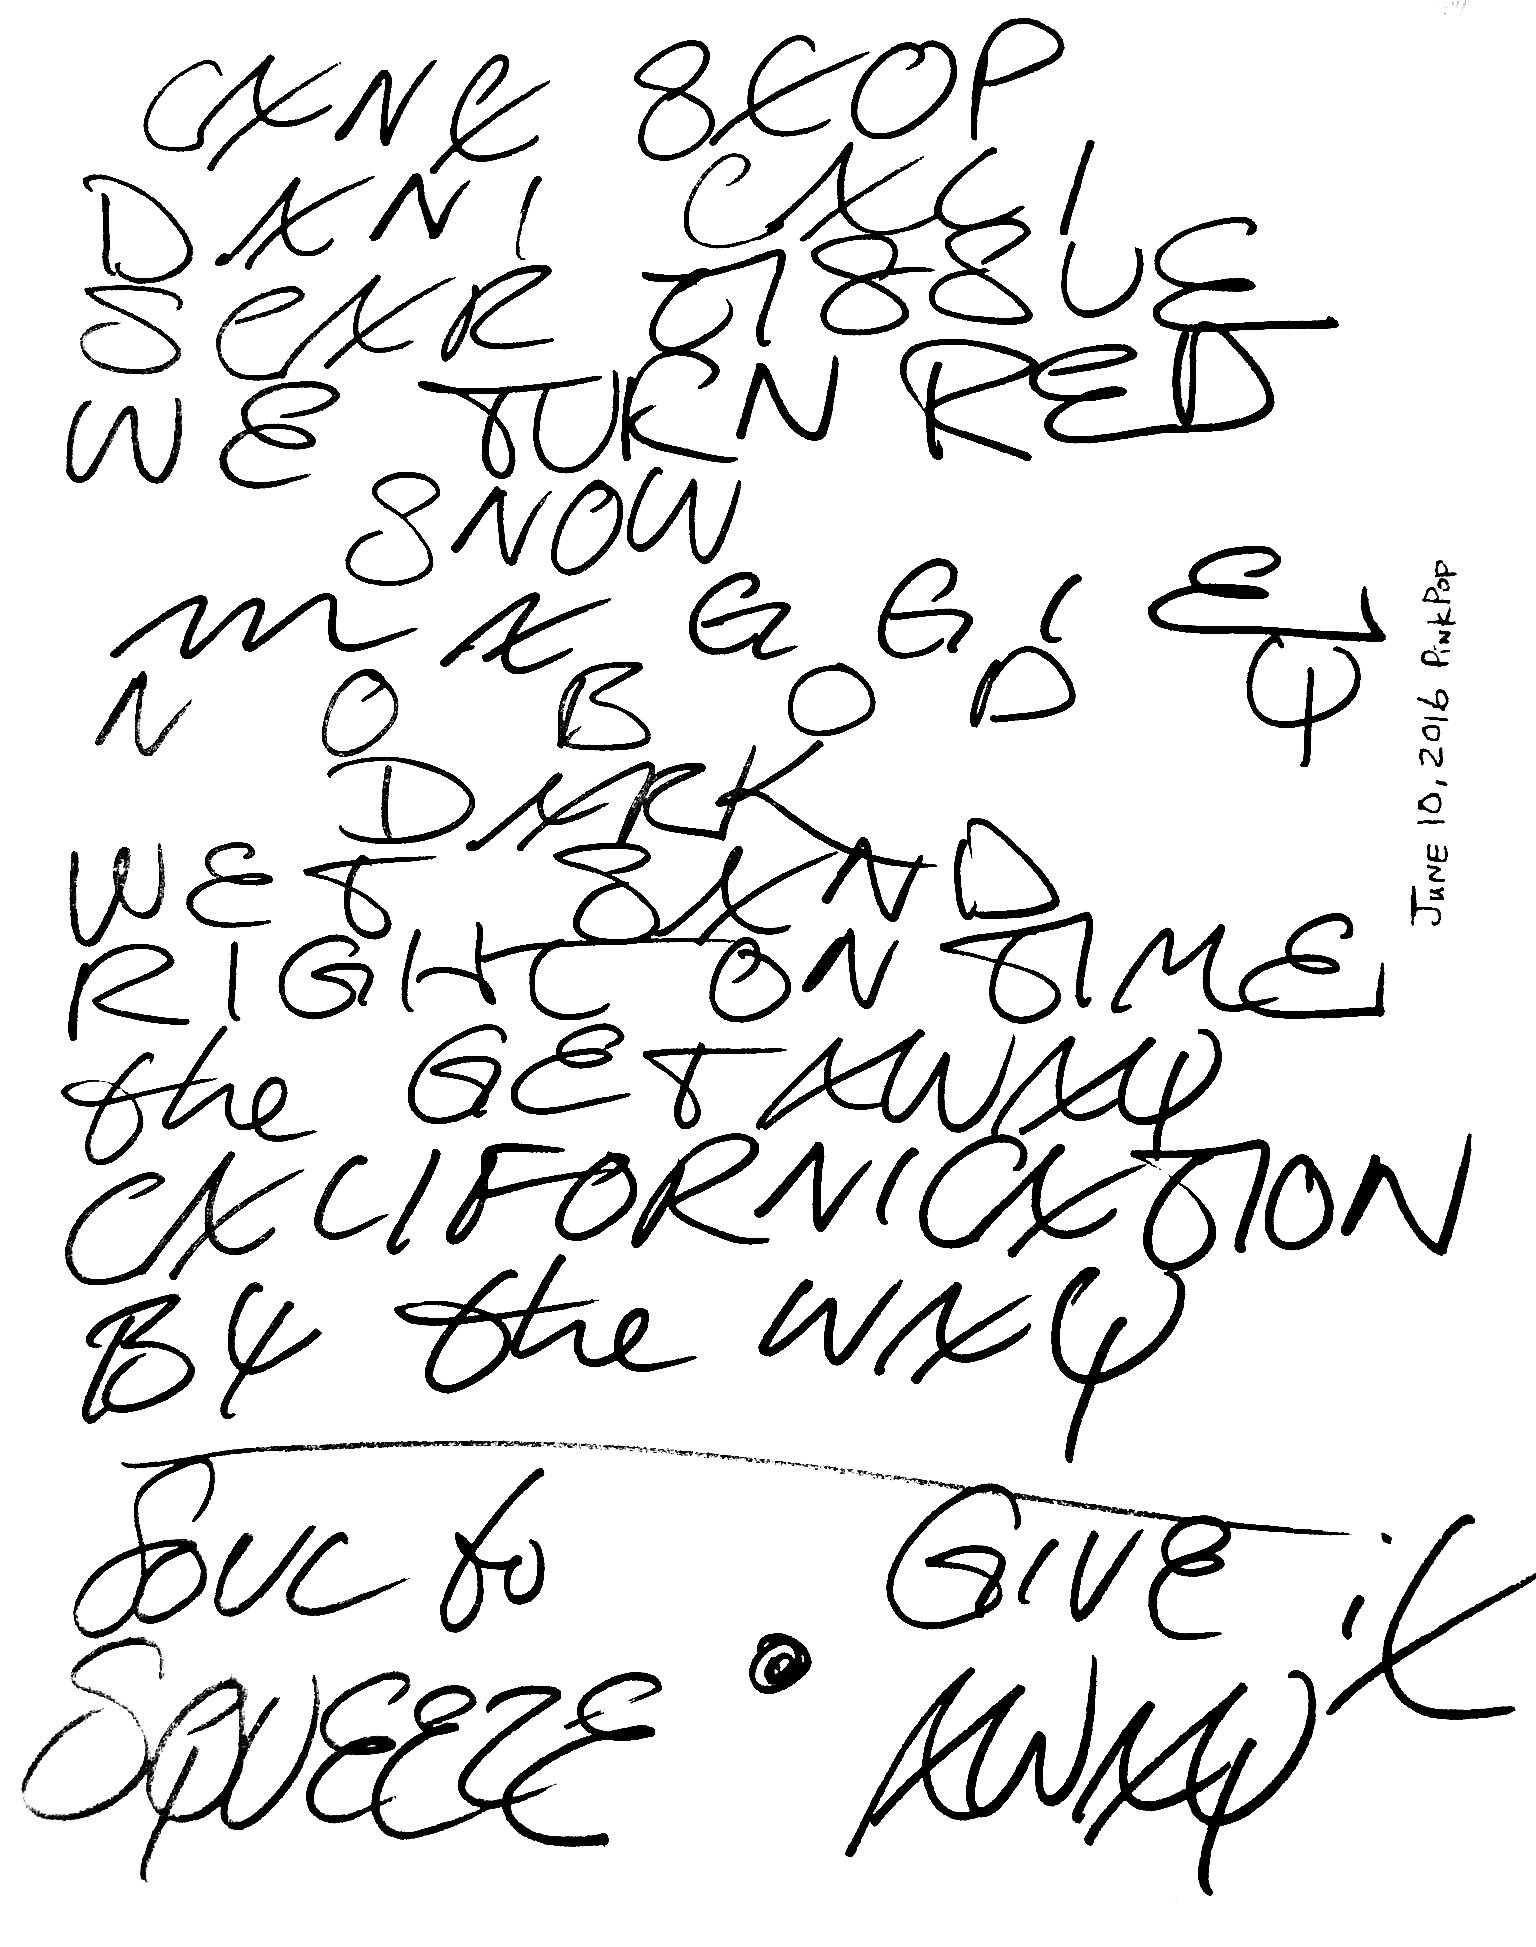 CAN'T STOP
DANI CALI
SCAR TISSUE
WE TURN RED
SNOW
MAGGIE
NOBODY
DARK
WET SAND
RIGHT ON TIME
the GETAWAY
CALIFORNICATION
BY the WAY
SOUL to
SQUEEZE
GIVE it
AWAY
JUNE 10, 2016 PINKPOP